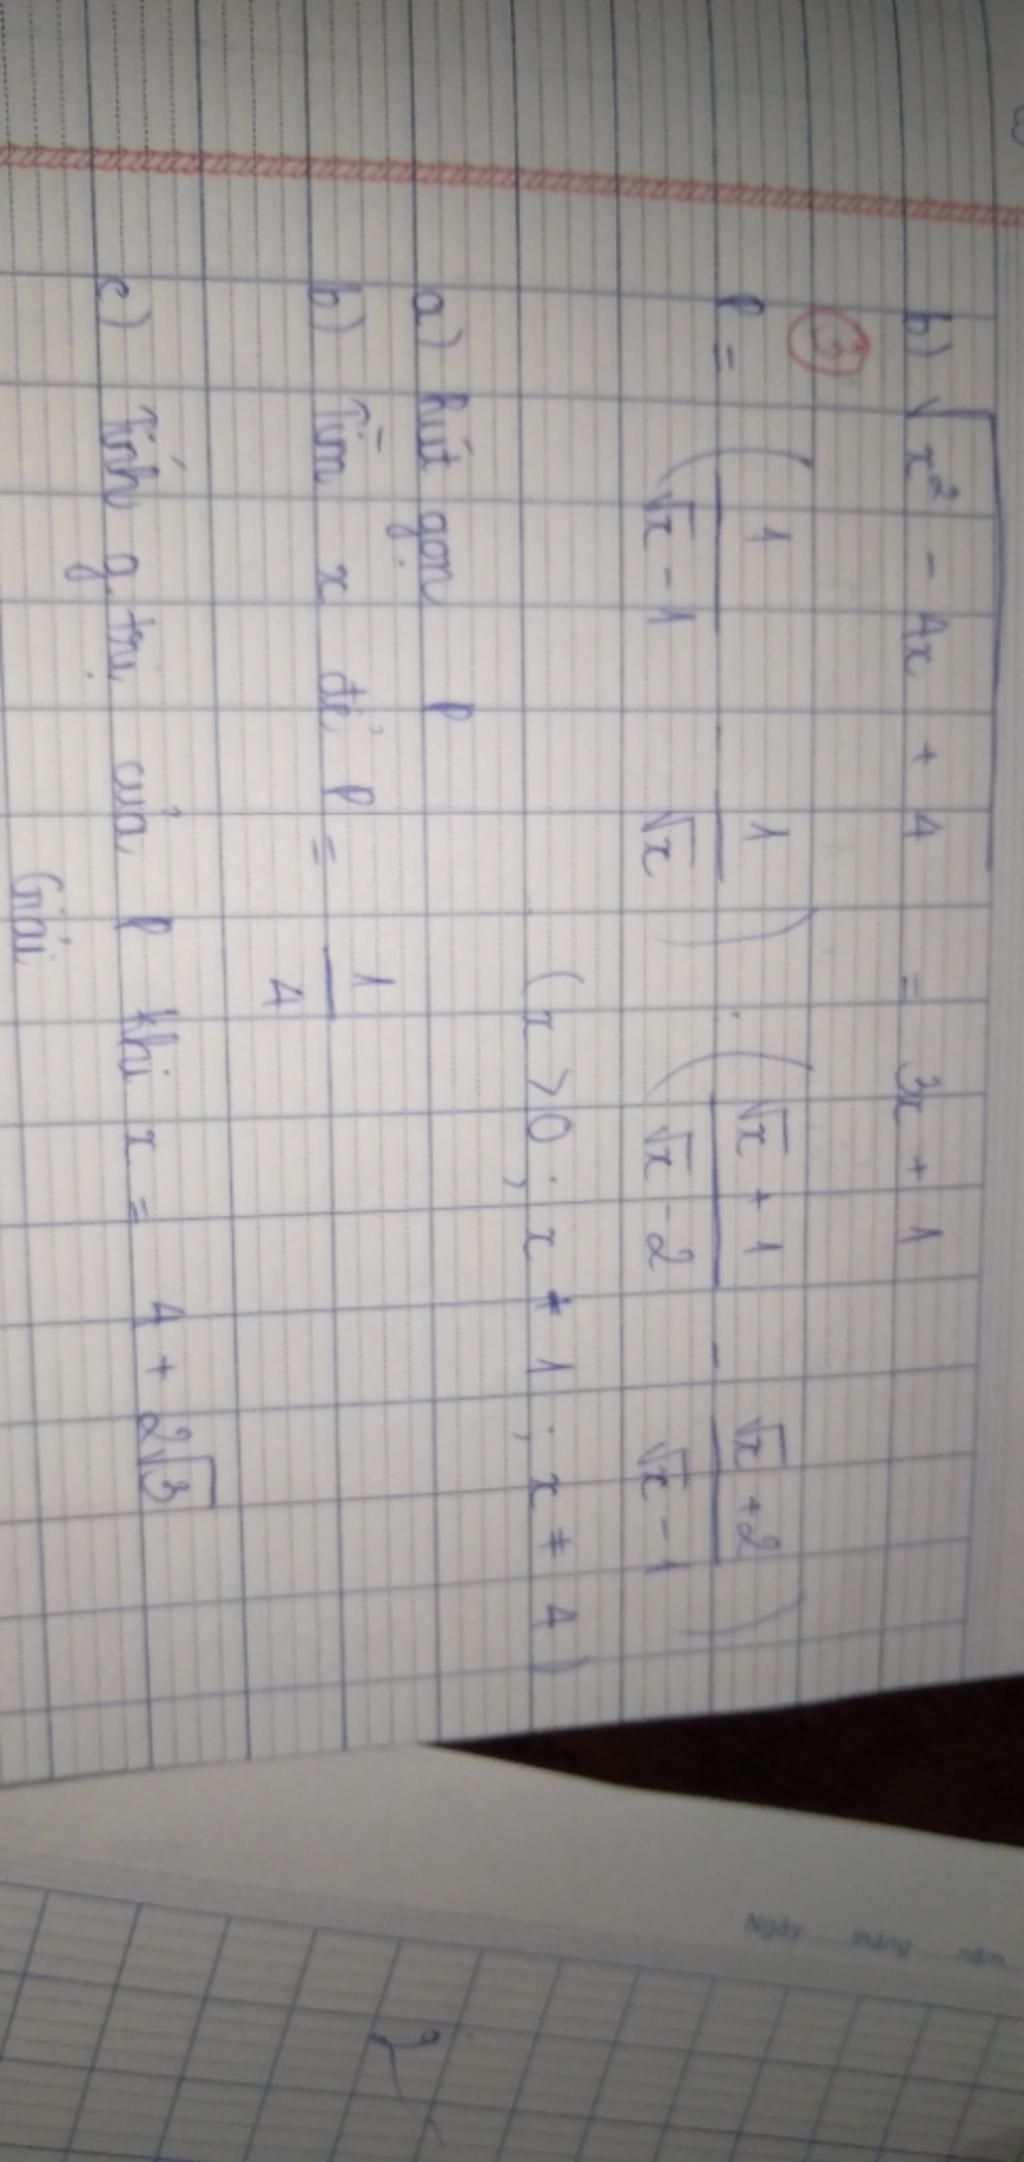 b) √(x² - 4x + 4) = 3x + 1
③
P = (1/(√x - 1) - 1/√x) : ((√x + 1)/(√x - 2) - (√x + 2)/(√x - 1))
(x > 0 ; x ≠ 1 ; x ≠ 4)
a) Rút gọn P
b) Tìm x để P = 1/4
c) Tính g.trị của P khi x = 4 + 2√3
Giải
Ngày tháng năm